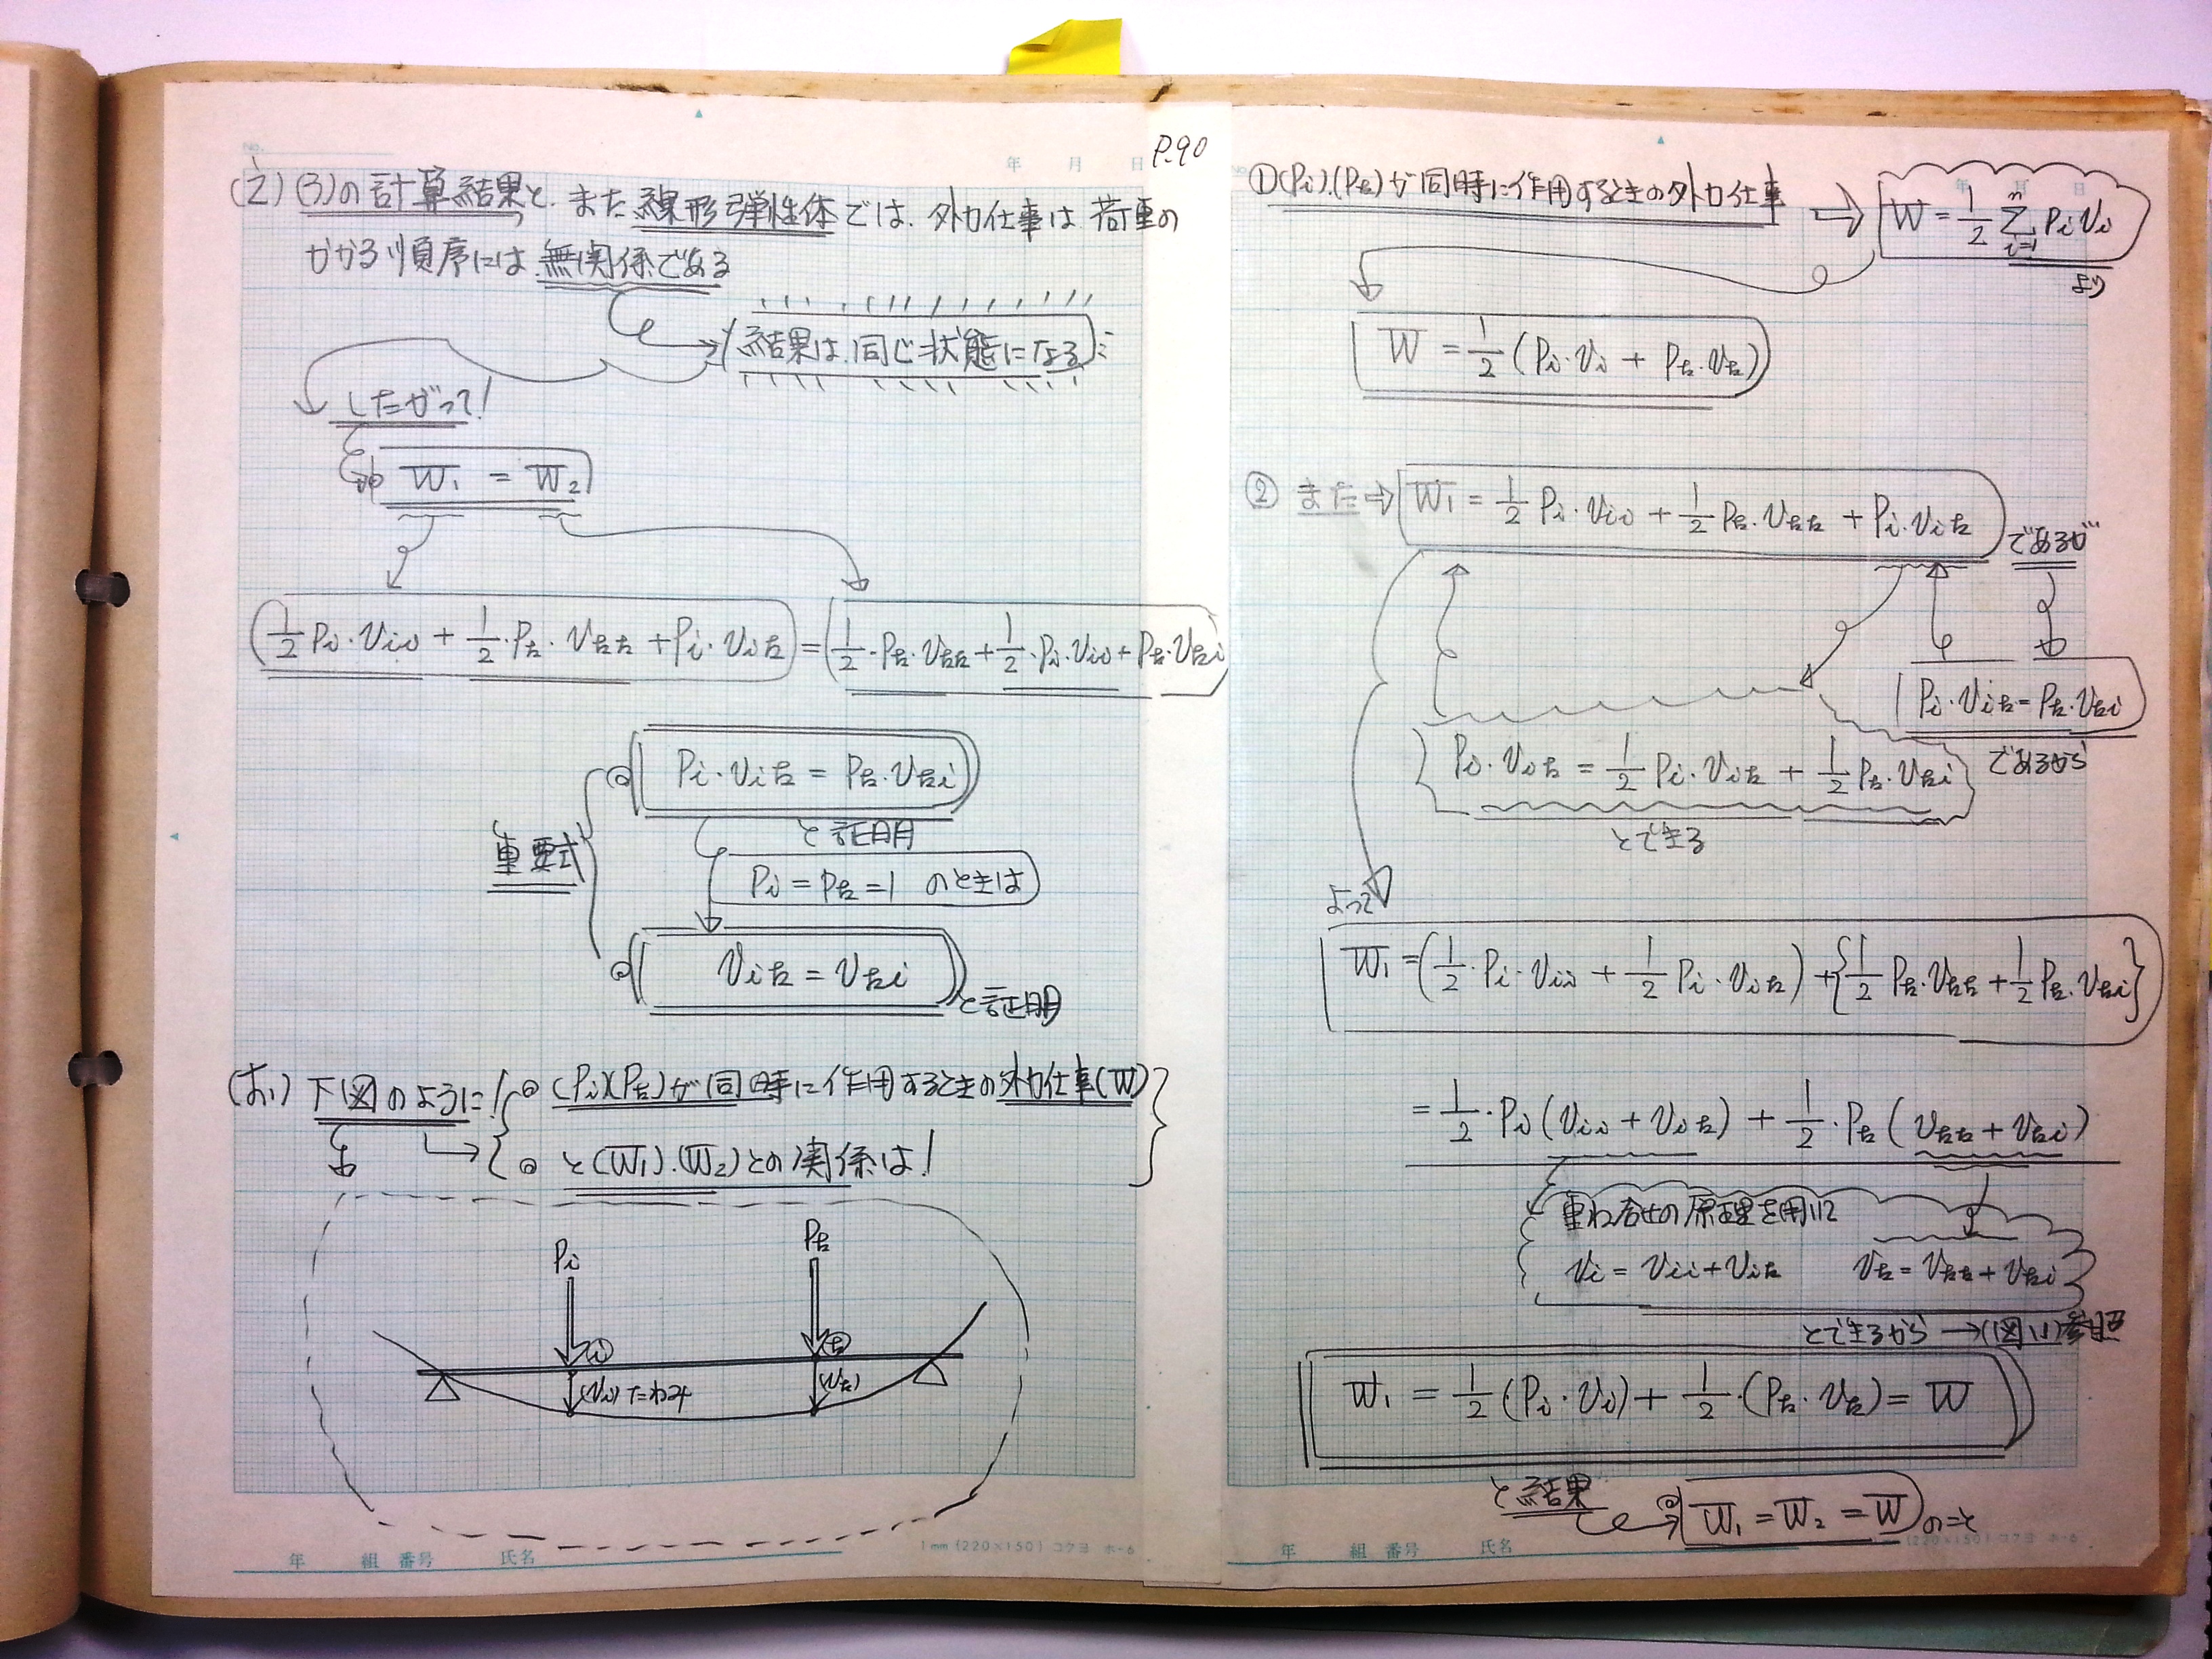 P.90
No.
年 月 日
(2) (3)の計算結果と、また線形弾性体では、外力仕事は荷重の
かかる順序には無関係である
結果は同じ状態になる
したがって!
W₁ = W₂
(1/2 Pi・vii + 1/2・Pk・vkk + Pi・vik) = (1/2・Pk・vkk + 1/2・Pi・vii + Pk・vki)
Pi・vik = Pk・vki
と証明
重要式
Pi = Pk = 1 のときは
vik = vki
と証明
下図のように!
(Pi)(Pk)が同時に作用するときの外力仕事(W)
と(W₁).(W₂)との関係は!
Pi
Pk
i
k
(vi) たわみ
(vk)
年 組 番号 氏名
1mm (220×150) コクヨ ホ-6
①(Pi).(Pk)が同時に作用するときの外力仕事 ⇒ W = 1/2 Σ Pi vi
n
i=1
より
W = 1/2 (Pi・vi + Pk・vk)
② また ⇒ W₁ = 1/2 Pi・vii + 1/2 Pk・vkk + Pi・vik
であるが
Pi・vik = Pk・vki
であるから
Pi・vik = 1/2 Pi・vik + 1/2 Pk・vki
とできる
よって
W₁ = (1/2・Pi・vii + 1/2 Pi・vik) + {1/2 Pk・vkk + 1/2 Pk・vki}
= 1/2・Pi (vii + vik) + 1/2・Pk (vkk + vki)
重ね合せの原理を用いて
vi = vii + vik vk = vkk + vki
とできるから → (図1)参照
W₁ = 1/2 (Pi・vi) + 1/2・(Pk・vk) = W
と結果
W₁ = W₂ = W のこと
年 組 番号 氏名
(220×150) コクヨ ホ-6